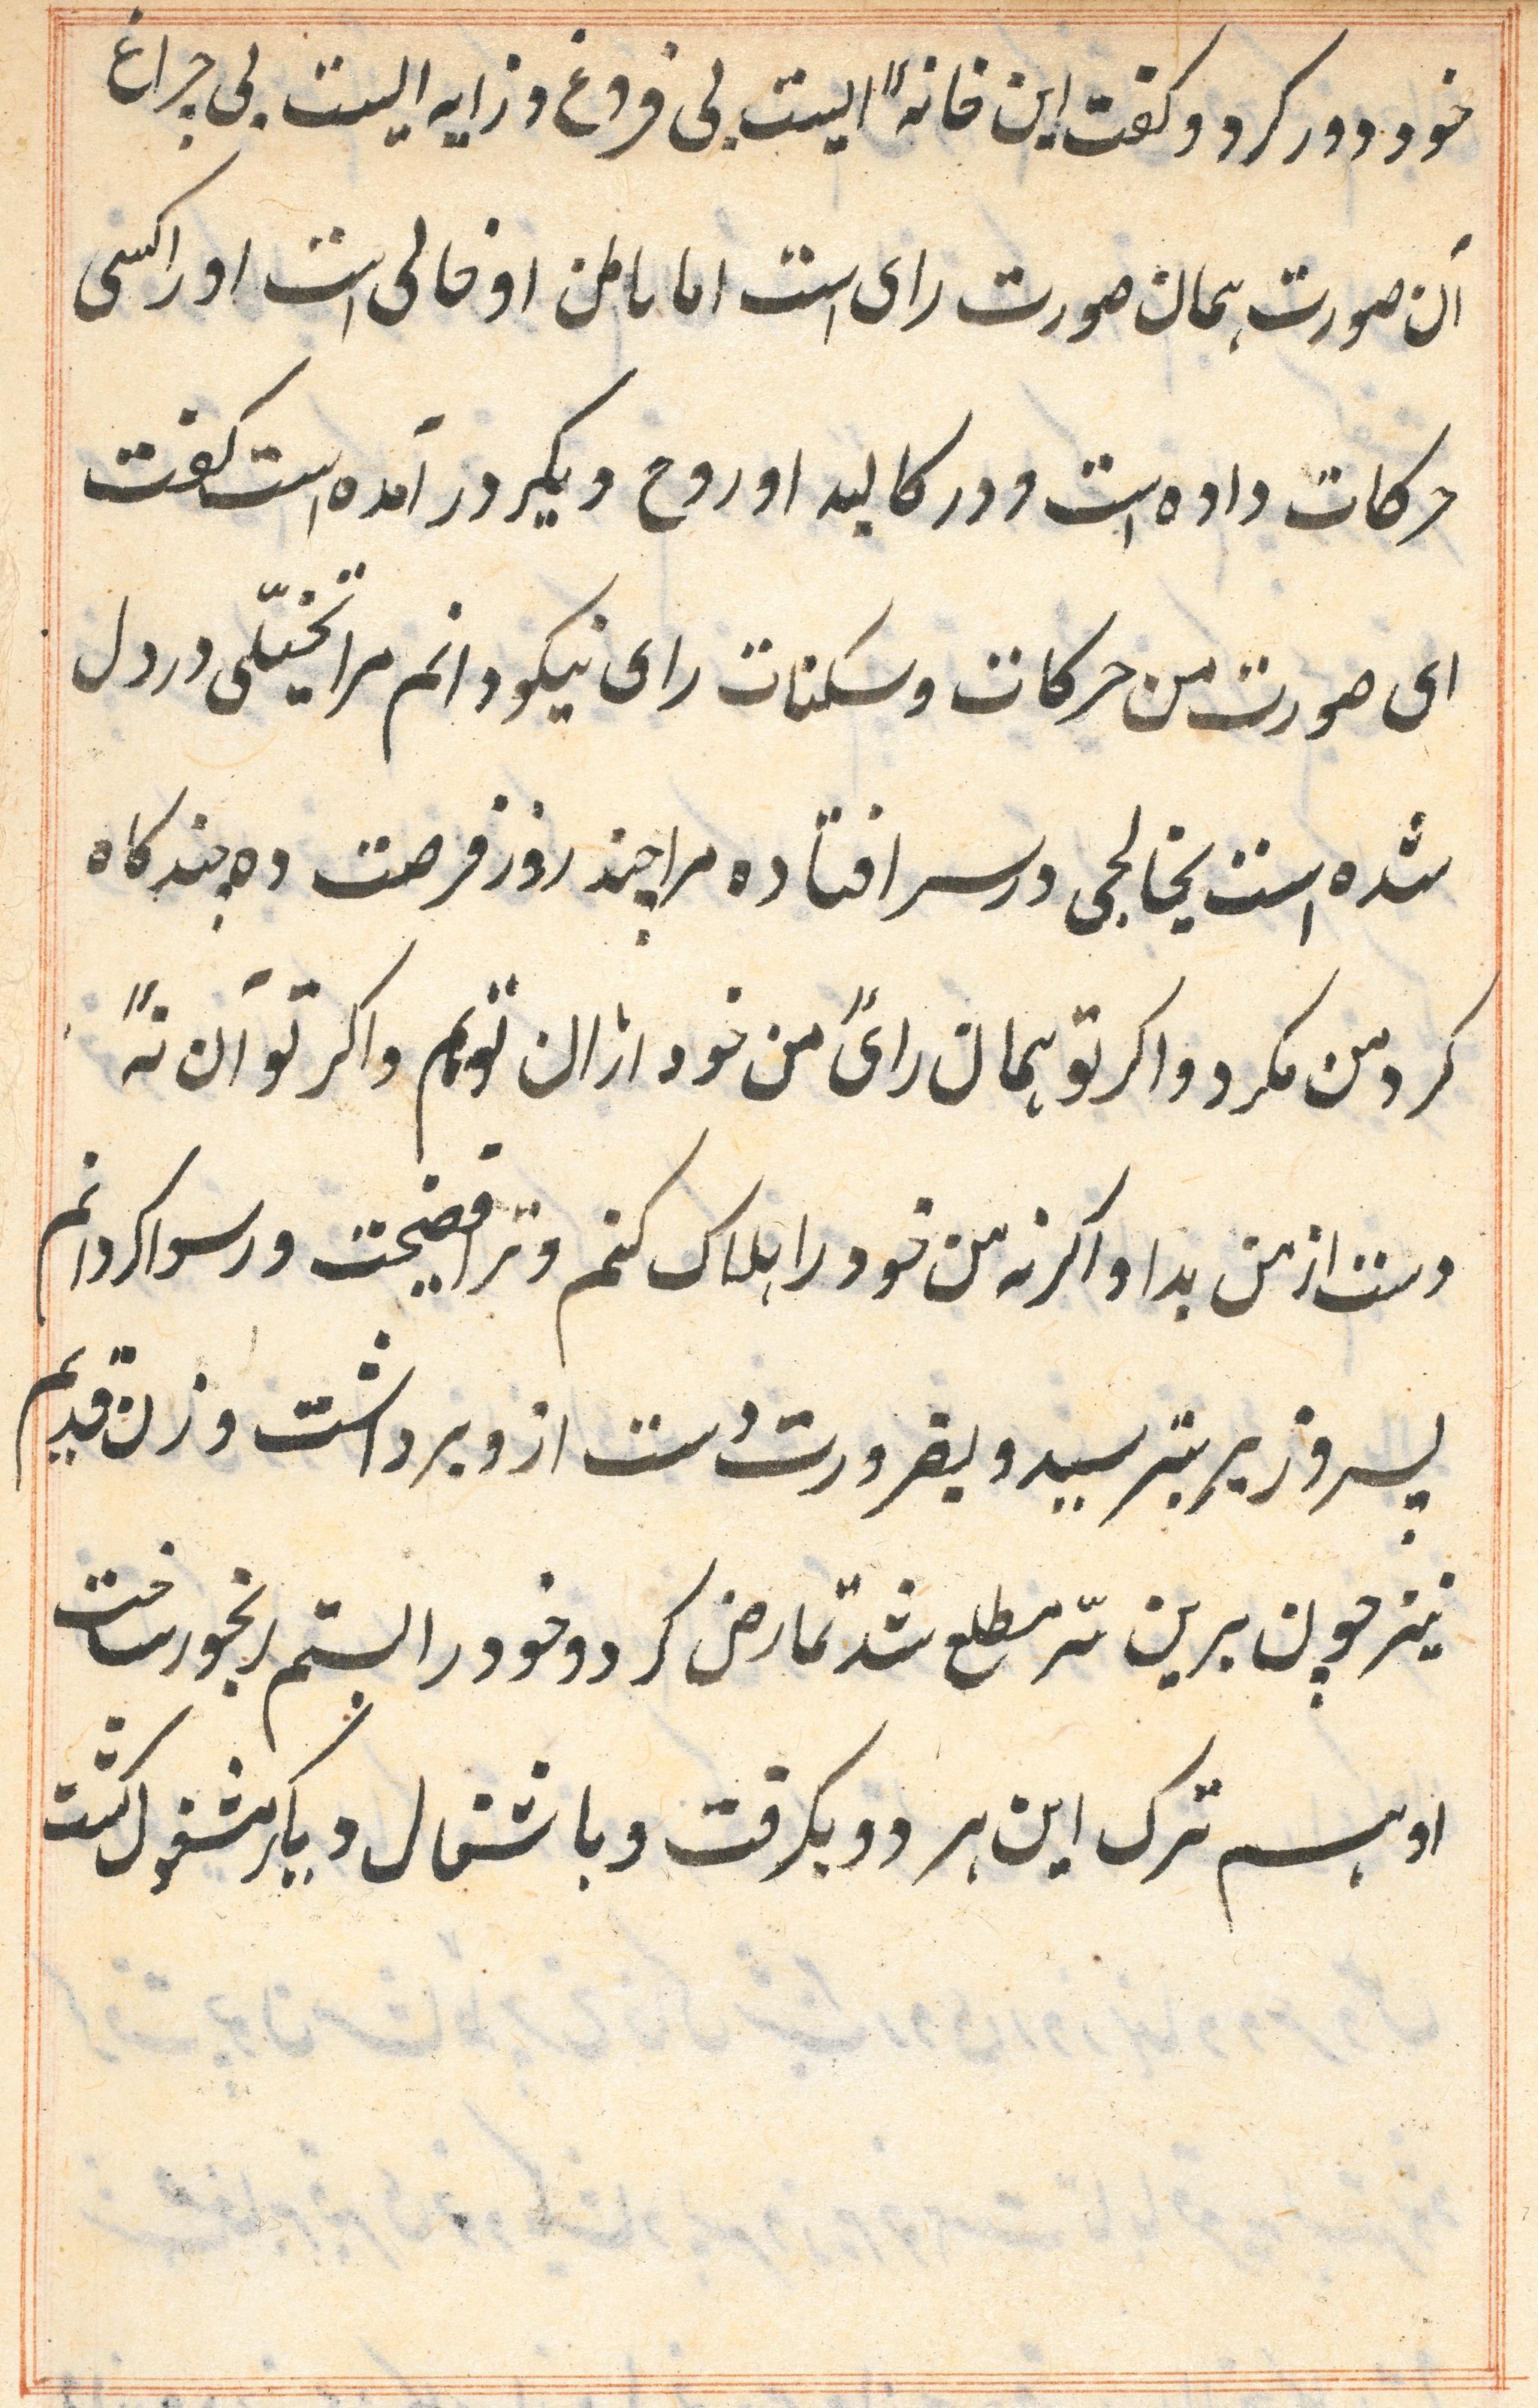 خود دور کرد و کفت این خانهٔ ایست بی فروغ و زایه ایست بی چراغ
آن صورت همان صورت رای است اما باطن او خالی است او را کسی
حرکات داده است و در کالبد او روح دیکر در آمده است کفت
ای صورت من حرکات و سکنات رای نیکو دانم مرا تخیّلی در دل
شده است یخالجی در سر افتاده مرا چند روز فرصت ده چند کاه
کرد من مکرد و اکر تو همان رائی من خود ازان توئم و اکر تو آن نهٔ
دست از من بدا و اکر نه من خود را هلاک کنم و ترا فضیحت و رسوا کردانم
پسر وزیر بترسید و بضرورت دست ازو برداشت و زن قدیم
نیز چون برین سّر مطلع شد تمارض کرد و خود را بستم رنجور ساخت
او هم ترک این هر دو بکرفت و باشتغال دیکر مشغول کشت